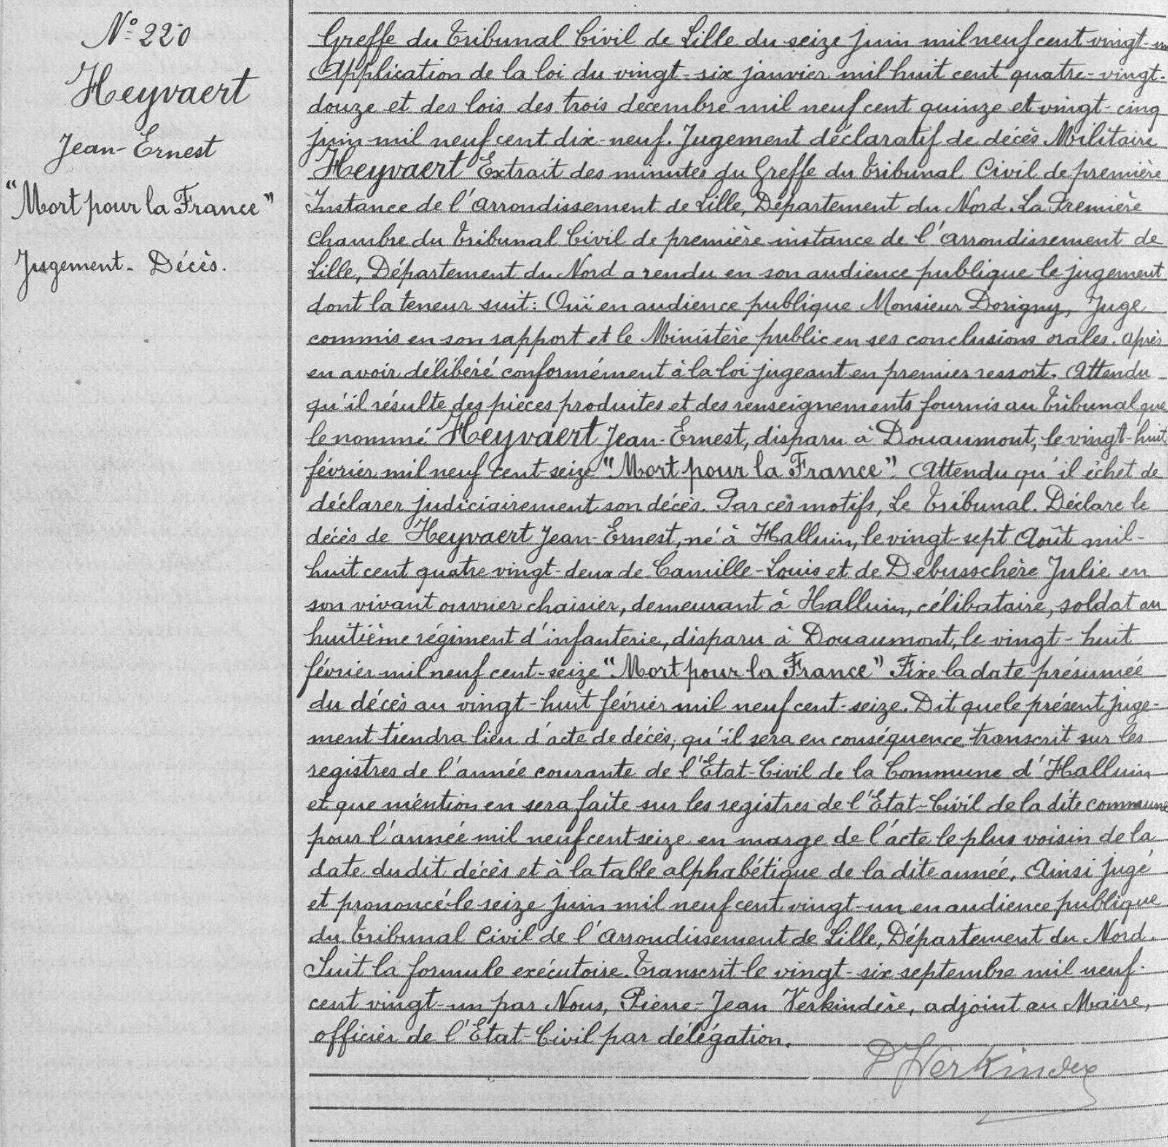 N° 220
Heyvaert
Jean-Ernest
"Mort pour la France"
Jugement. Décès.
Greffe du Tribunal Civil de Lille du seize juin mil neuf cent vingt-un
Application de la loi du vingt-six janvier mil huit cent quatre-vingt-
douze et des lois des trois décembre mil neuf cent quinze et vingt-cinq
juin mil neuf cent dix-neuf. Jugement déclaratif de décès Militaire
Heyvaert Extrait des minutes du Greffe du Tribunal Civil de première
Instance de l'arrondissement de Lille, Département du Nord. La Première
chambre du Tribunal Civil de première instance de l'arrondissement de
Lille, Département du Nord a rendu en son audience publique le jugement
dont la teneur suit: Oui en audience publique Monsieur Dorigny, Juge
commis en son rapport et le Ministère public en ses conclusions orales. après
en avoir délibéré conformément à la loi jugeant en premier ressort. Attendu
qu'il résulte des pièces produites et des renseignements fournis au Tribunal que
le nommé Heyvaert Jean-Ernest, disparu à Douaumont, le vingt-huit
février mil neuf cent-seize "Mort pour la France". Attendu qu'il échet de
déclarer judiciairement son décès. Par ces motifs, Le Tribunal. Déclare le
décès de Heyvaert Jean-Ernest, né à Halluin, le vingt-sept Août mil-
huit cent quatre vingt-deux de Camille-Louis et de Debusschère Julie en
son vivant ouvrier chaisier, demeurant à Halluin, célibataire, soldat au
huitième régiment d'infanterie, disparu à Douaumont, le vingt-huit
février mil neuf cent-seize "Mort pour la France" Fixe la date présumée
du décès au vingt-huit février mil neuf cent-seize. Dit que le présent juge-
ment tiendra lieu d'acte de décès, qu'il sera en conséquence transcrit sur les
registres de l'année courante de l'Etat-Civil de la Commune d'Halluin
et que méntion en sera faite sur les registres de l'Etat-Civil de la dite commune
pour l'année mil neuf cent seize en marge de l'acte le plus voisin de la
date du dit décès et à la table alphabétique de la dite année. Ainsi jugé
et prononcé le seize juin mil neuf cent vingt-un en audience publique
du Tribunal Civil de l'arrondissement de Lille, Département du Nord
Suit la formule exécutoire. Transcrit le vingt-six septembre mil neuf-
cent vingt-un par Nous, Pierre-Jean Verkindère, adjoint au Maire,
officier de l'Etat-Civil par délégation.
P Verkindere